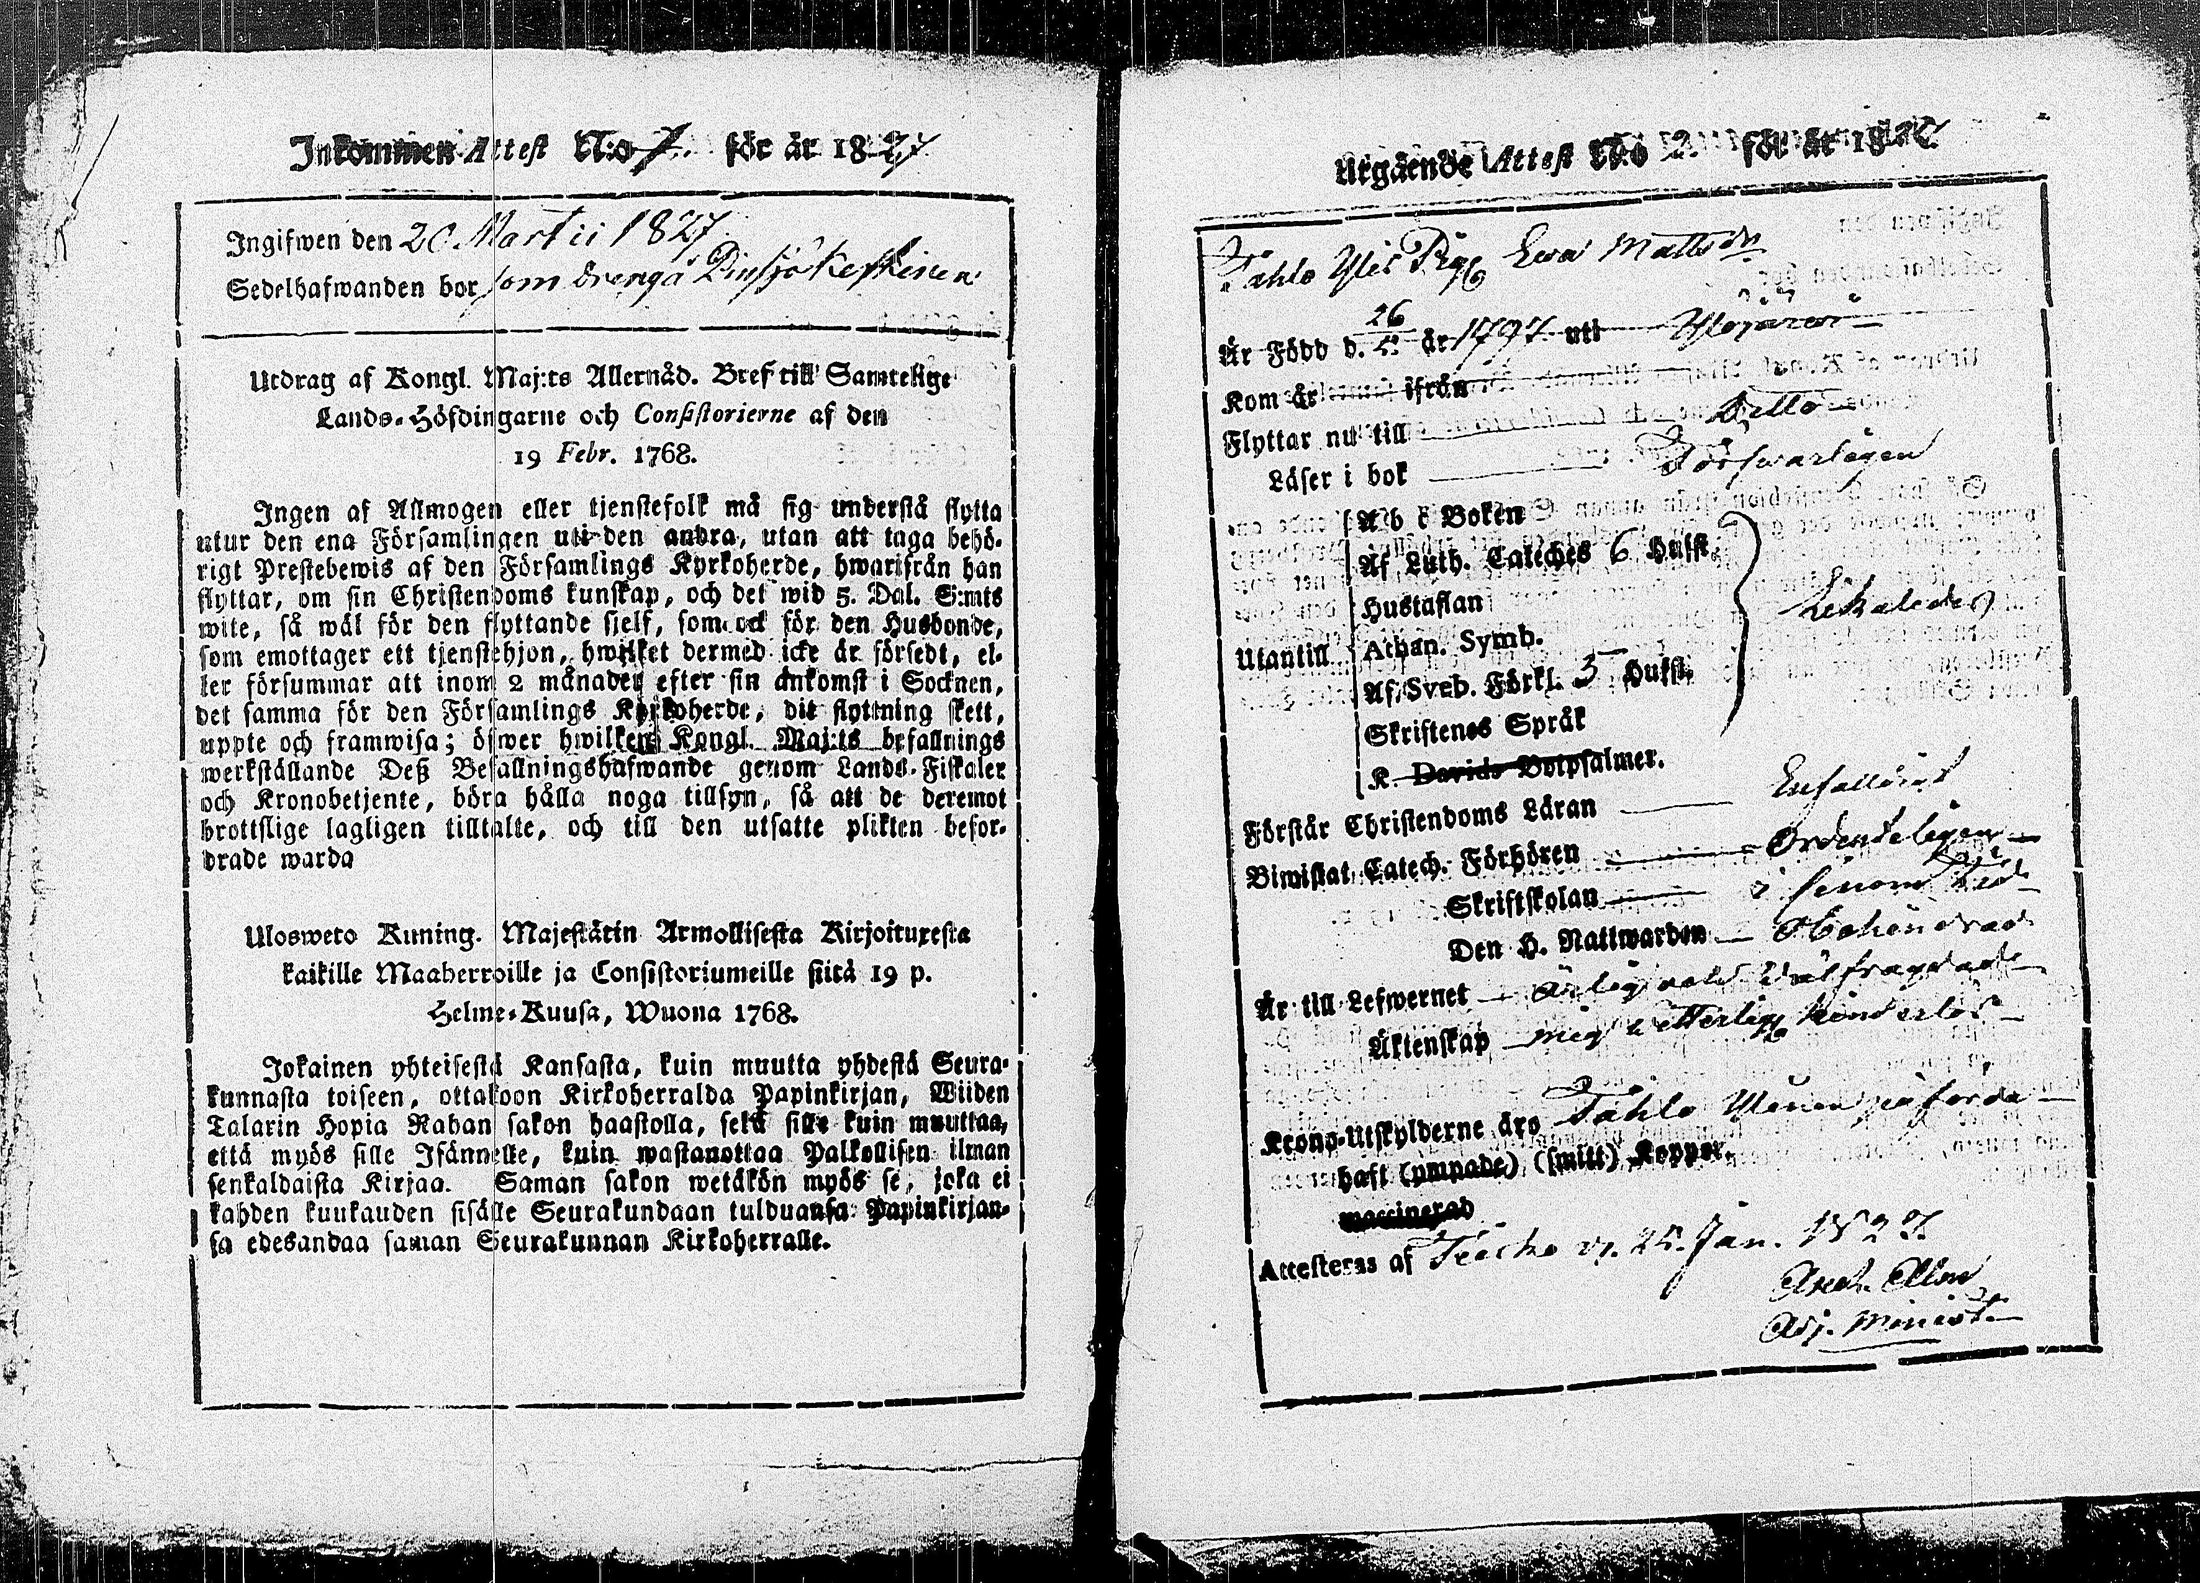 Inkommen Attest N:o 7. för år 1827
Ingifwen den 20 Martii 1827.
Sedelhafwanden bor som dräng å
Utdrag af Kongl. Maj:ts Allernåd. Bref till Samtelige
Lands-Höfdingarne och Consistorierne af den
19 Febr. 1768.
Ingen af Allmogen eller tjenstefolk må sig understå flytta
utur den ena Församlingen uti den andra, utan att taga behö-
rigt Prestebewis af den Församlings Kyrkoherde, hwarifrån han
flyttar, om sin Christendoms kunskap, och det wid 5. Dal. S:mts
wite, så wäl för den flyttande sjelf, som ock för den Husbonde,
som emottager ett tjenstehjon, hwilket dermed icke är försedt, el-
ler försummar att inom 2 månader efter sin ankomst i Socknen,
det samma för den Församlings Kyrkoherde, dit flyttning skett,
uppte och framwisa; öfwer hwilken Kongl. Maj:ts befallnings
werkställande Deß Befallningshafwande genom Lands-Fiskaler
och Kronobetjente, böra hålla noga tillsyn, så att de deremot
brottslige lagligen tilltalte, och till den utsatte plikten befor-
drade warda
Ulosweto Kuning. Majestätin Armollisesta Kirjoituxesta
kaikille Maaherroille ja Consistoriumeille siitä 19 p.
Helme-Kuusa, Wuona 1768.
Jokainen yhteisestä Kansasta, kuin muutta yhdestä Seura-
kunnasta toiseen, ottakoon Kirkoherralda Papinkirjan, Wiiden
Talarin Hopia Rahan sakon haastolla, sekä sille kuin muuttaa,
että myös sille Isännelle, kuin wastanottaa Palkollisen ilman
senkaldaista Kirjaa. Saman sakon wetäkön myös se, joka ei
kahden kuukauden sisälle Seurakundaan tulduansa Papinkirjan-
sa edesandaa saman Seurakunnan Kirkoherralle.
Utgående Attest N:o 2. för år 1827
Fahlo Pig. Ewa Mattsdr
Är Född d. 26/5. år 1797. uti
Kom år ifrån
Flyttar nu till Ditto
Läser i bok Förswarligen
A b c Boken
Af Luth. Cateches 6 Hufst.
Hustaflan
Utantill Athan. Symb.
Af Sveb. Förkl. 3 Hufst.
Skriftenes Språk
K. Davids Botpsalmer.
Likaledes
Förstår Christendoms Läran Enfalldigt
Biwistat Catech. Förhören Ordenteligen
Skriftskolan i sinom tid
Den H. Nattwarden Oklandrad
Är till Lefwernet Ärlig och Wälfrägdad
Äktenskap mig wetterlig hinderlös
Krono-Utskylderne äro Fahlo
haft (ympade) (smitt) Koppor.
vaccinerad
Attesteras af d. 25. Jan. 1827.
Adj. Minist.